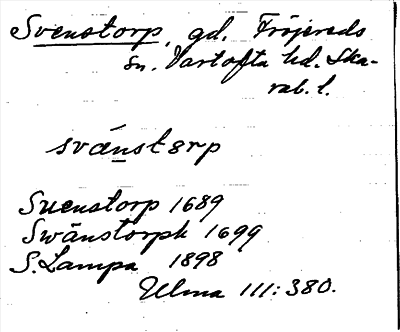 Svenstorp, gd. Fröjereds
sn. Vartofta hd. Ska-
rab. l.
svánstorp
Suenstorp 1689
Swänstorph 1699
S. Lampa 1898
Ulma 111:380.